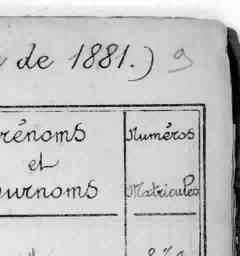 de 1881.) 9
rénoms
et
urnoms
Numéros
Matricules